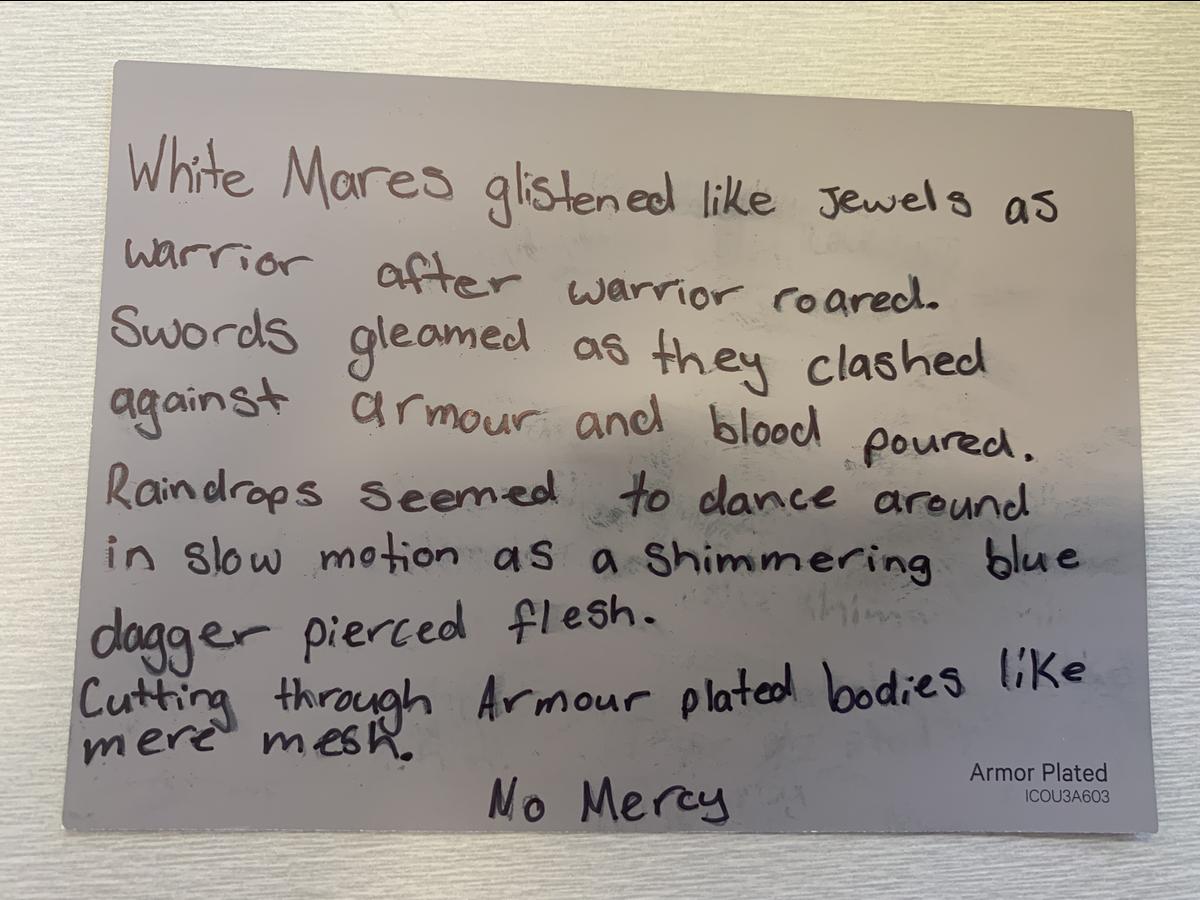 White Mares glistened like Jewels as
warrior after warrior roared.
Swords gleamed as they clashed
against armour and blood poured.
Raindrops seemed to dance around
in slow motion as a shimmering blue
dagger pierced flesh.
Cutting through Armour plated bodies like
mere mesh.
No Mercy
Armor Plated
ICOU3A603